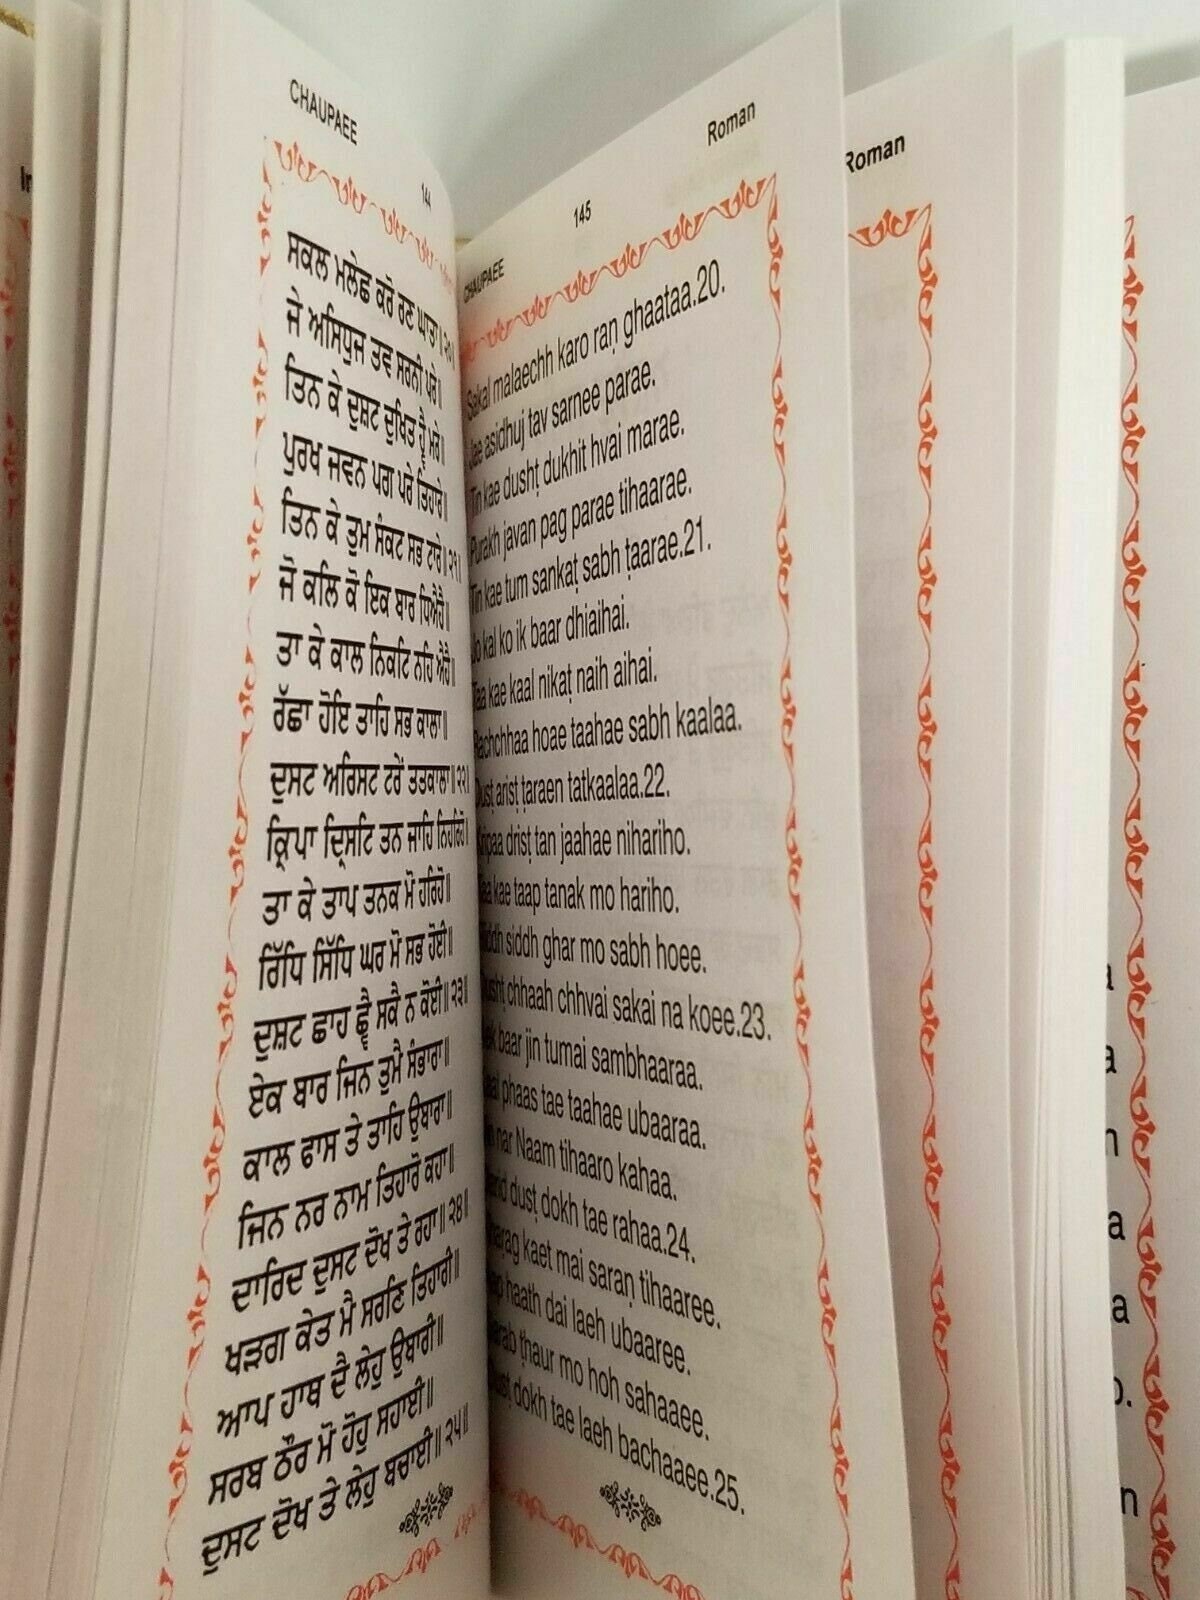 CHAUPAEE
144
ਸਕਲ ਮਲੇਛ ਕਰੋ ਰਣ ਘਾਤਾ॥੨੦॥
ਜੇ ਅਸਿਧੁਜ ਤਵ ਸਰਨੀ ਪਰੇ॥
ਤਿਨ ਕੇ ਦੁਸ਼ਟ ਦੁਖਿਤ ਹ੍ਵੈ ਮਰੇ॥
ਪੁਰਖ ਜਵਨ ਪਗ ਪਰੇ ਤਿਹਾਰੇ॥
ਤਿਨ ਕੇ ਤੁਮ ਸੰਕਟ ਸਭ ਟਾਰੇ॥੨੧॥
ਜੋ ਕਲਿ ਕੋ ਇਕ ਬਾਰ ਧਿਐਹੈ॥
ਤਾ ਕੇ ਕਾਲ ਨਿਕਟਿ ਨਹਿ ਐਹੈ॥
ਰੱਛਾ ਹੋਇ ਤਾਹਿ ਸਭ ਕਾਲਾ॥
ਦੁਸਟ ਅਰਿਸਟ ਟਰੇਂ ਤਤਕਾਲਾ॥੨੨॥
ਕ੍ਰਿਪਾ ਦ੍ਰਿਸਟਿ ਤਨ ਜਾਹਿ ਨਿਹਰਿਹੋ॥
ਤਾ ਕੇ ਤਾਪ ਤਨਕ ਮੋ ਹਰਿਹੋ॥
ਰਿੱਧਿ ਸਿੱਧਿ ਘਰ ਮੋ ਸਭ ਹੋਈ॥
ਦੁਸ਼ਟ ਛਾਹ ਛ੍ਵੈ ਸਕੈ ਨ ਕੋਈ॥੨੩॥
ਏਕ ਬਾਰ ਜਿਨ ਤੁਮੈ ਸੰਭਾਰਾ॥
ਕਾਲ ਫਾਸ ਤੇ ਤਾਹਿ ਉਬਾਰਾ॥
ਜਿਨ ਨਰ ਨਾਮ ਤਿਹਾਰੋ ਕਹਾ॥
ਦਾਰਿਦ ਦੁਸਟ ਦੋਖ ਤੇ ਰਹਾ॥੨੪॥
ਖੜਗ ਕੇਤ ਮੈ ਸਰਣਿ ਤਿਹਾਰੀ॥
ਆਪ ਹਾਥ ਦੈ ਲੇਹੁ ਉਬਾਰੀ॥
ਸਰਬ ਠੌਰ ਮੋ ਹੋਹੁ ਸਹਾਈ॥
ਦੁਸਟ ਦੋਖ ਤੇ ਲੇਹੁ ਬਚਾਈ॥੨੫॥
CHAUPAEE
145
Roman
Sakal malaechh karo raṇ ghaataa.20.
Jae asidhuj tav sarnee parae.
Tin kae dushṭ dukhit hvai marae.
Purakh javan pag parae tihaarae.
Tin kae tum sankaṭ sabh ṭaarae.21.
Jo kal ko ik baar dhiaihai.
Taa kae kaal nikaṭ naih aihai.
Rachchhaa hoae taahae sabh kaalaa.
Dusṭ arisṭ ṭaraen tatkaalaa.22.
Kripaa drisṭ tan jaahae nihariho.
Taa kae taap tanak mo hariho.
siddh ghar mo sabh hoee.
chhaah chhvai sakai na koee.23.
baar jin tumai sambhaaraa.
phaas tae taahae ubaaraa.
nar Naam tihaaro kahaa.
dusṭ dokh tae rahaa.24.
kaet mai saraṇ tihaaree.
haath dai laeh ubaaree.
ṭhaur mo hoh sahaaee.
Dusṭ dokh tae laeh bachaaee.25.
Roman